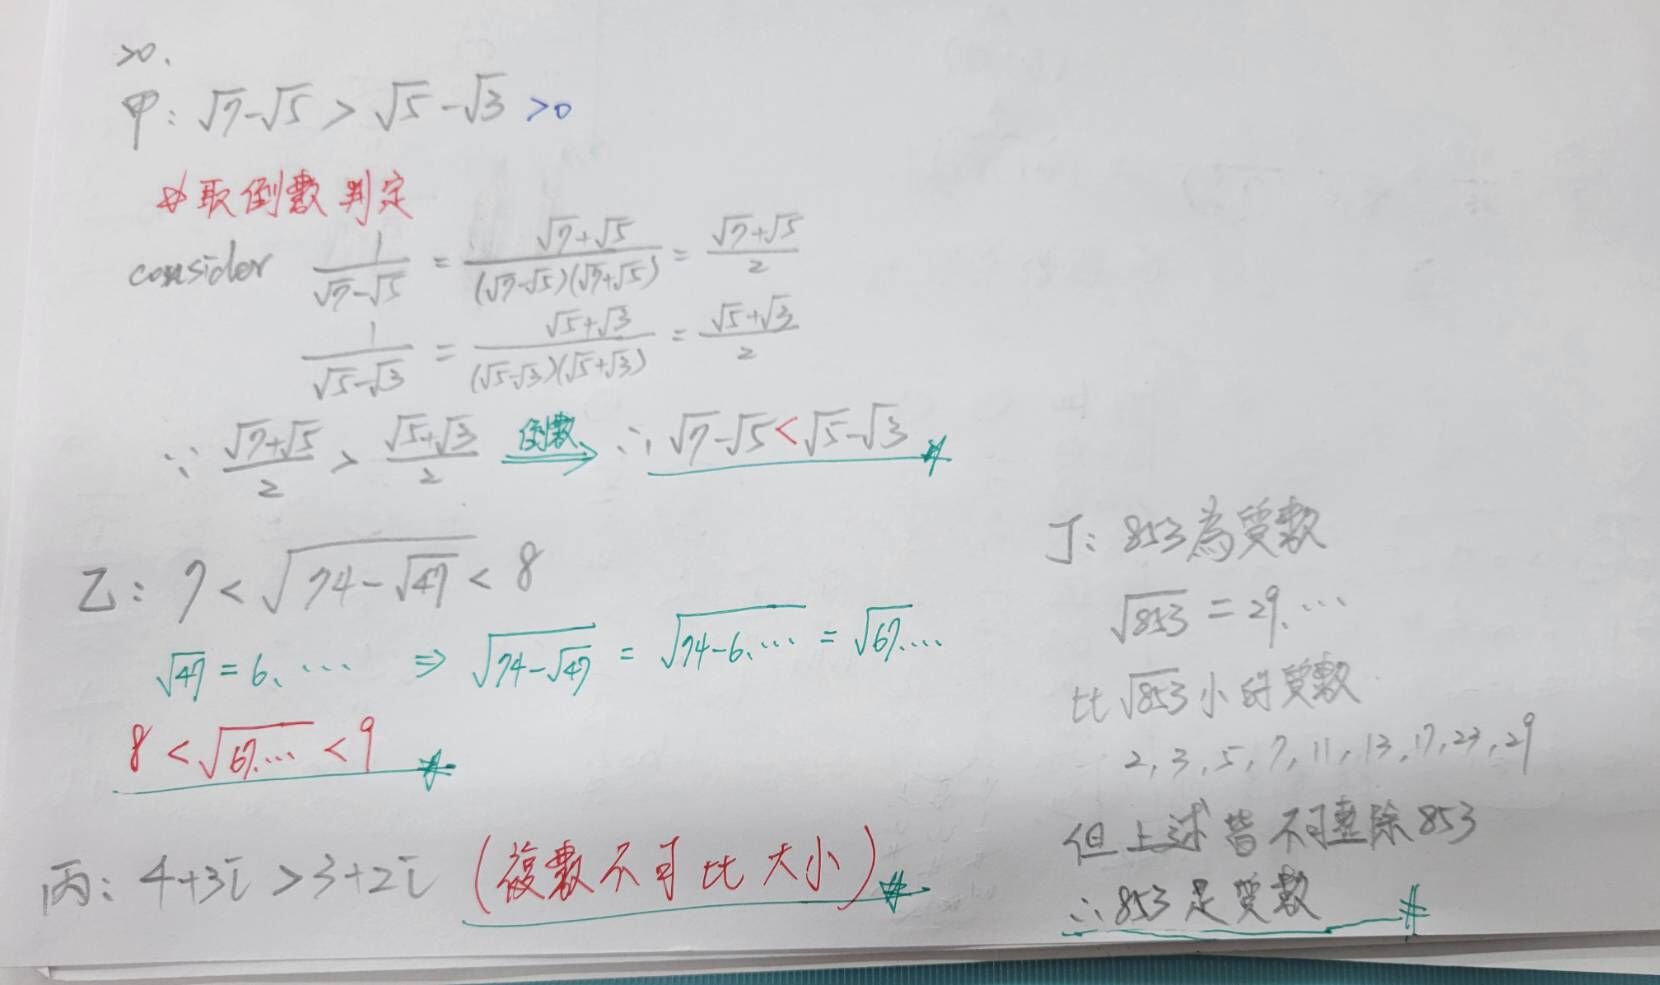 20.
甲: √7-√5 > √5-√3 >0
※取倒數判定
consider 1/(√7-√5) = (√7+√5)/((√7-√5)(√7+√5)) = (√7+√5)/2
1/(√5-√3) = (√5+√3)/((√5-√3)(√5+√3)) = (√5+√3)/2
∵ (√7+√5)/2 > (√5+√3)/2 倒數⇒ ∴ √7-√5 < √5-√3
乙: 7 < √(74-√47) < 8
√47 = 6.… ⇒ √(74-√47) = √(74-6.…) = √67.…
8 < √67.… < 9
丙: 4+3i > 3+2i (複數不可比大小)
丁: 853為質數
√853 = 29.…
比√853小的質數
2, 3, 5, 7, 11, 13, 17, 23, 29
但上述皆不可整除853
∴ 853是質數